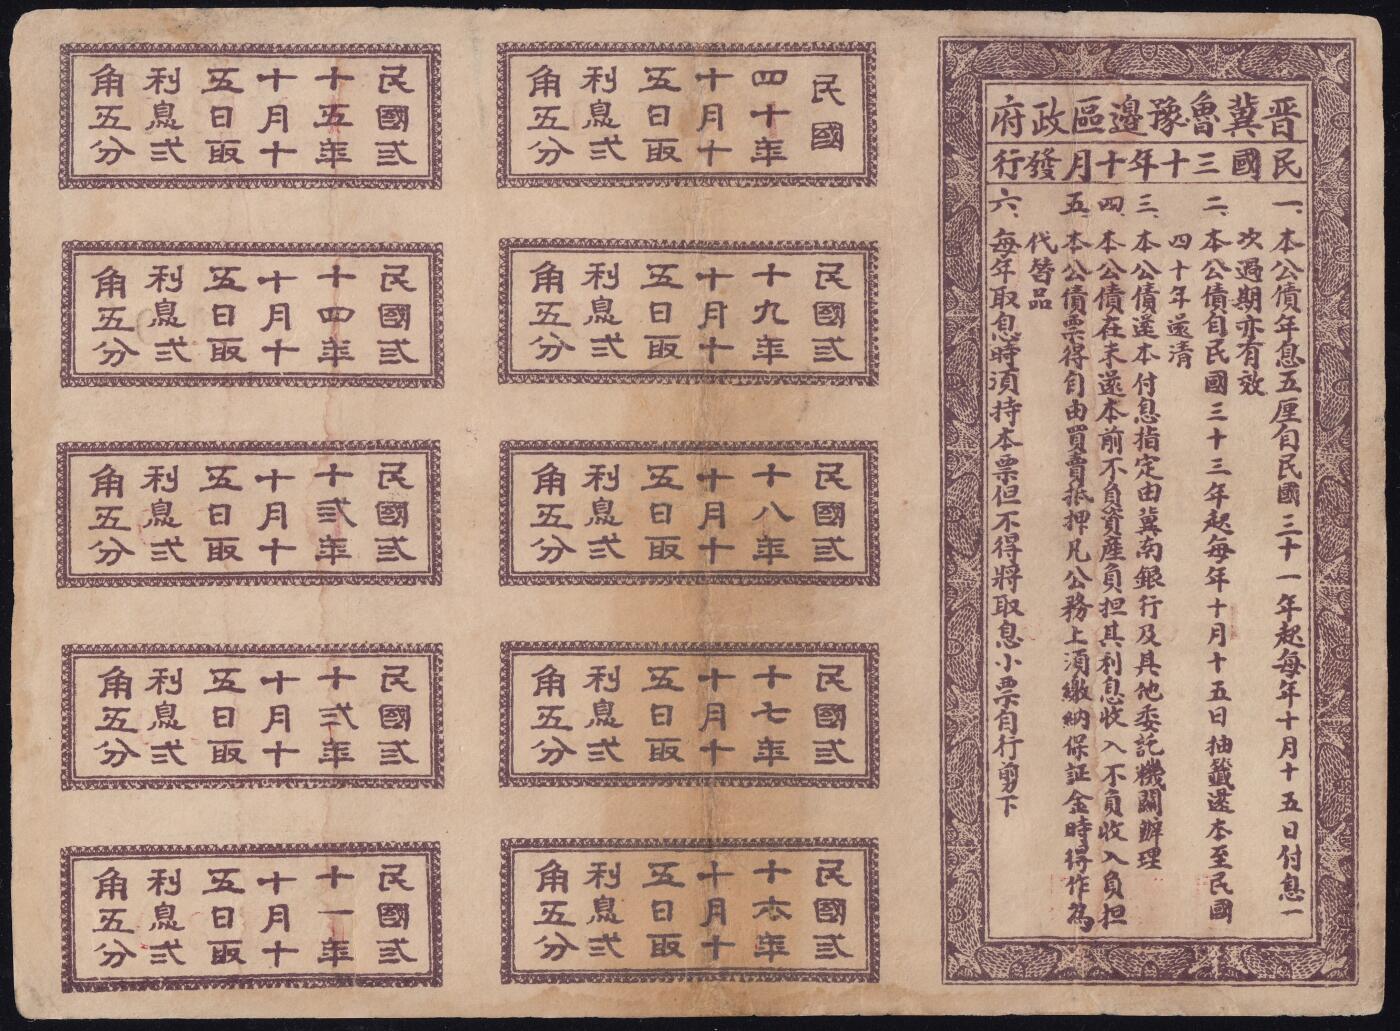 晋冀魯豫邊區政府
民國三十年十月發行
一、本公債年息五厘自民國三十一年起每年十月十五日付息一
次過期亦有效
二、本公債自民國三十三年起每年十月十五日抽籤還本至民國
四十年还清
三、本公債还本付息指定由冀南銀行及其他委託機關辦理
四、本公債在未还本前不負資產負担其利息收入不負收入負担
五、本公債票得自由買賣抵押凡公務上須繳納保証金時得作為
代替品
六、每年取息時須持本票但不得將取息小票自行剪下
民國
四十年
十月十
五日取
利息弍
角五分
民國弎
十九年
十月十
五日取
利息弍
角五分
民國弎
十八年
十月十
五日取
利息弍
角五分
民國弎
十七年
十月十
五日取
利息弍
角五分
民國弎
十六年
十月十
五日取
利息弍
角五分
民國弎
十五年
十月十
五日取
利息弍
角五分
民國弎
十四年
十月十
五日取
利息弍
角五分
民國弎
十弎年
十月十
五日取
利息弍
角五分
民國弎
十弍年
十月十
五日取
利息弍
角五分
民國弎
十一年
十月十
五日取
利息弍
角五分